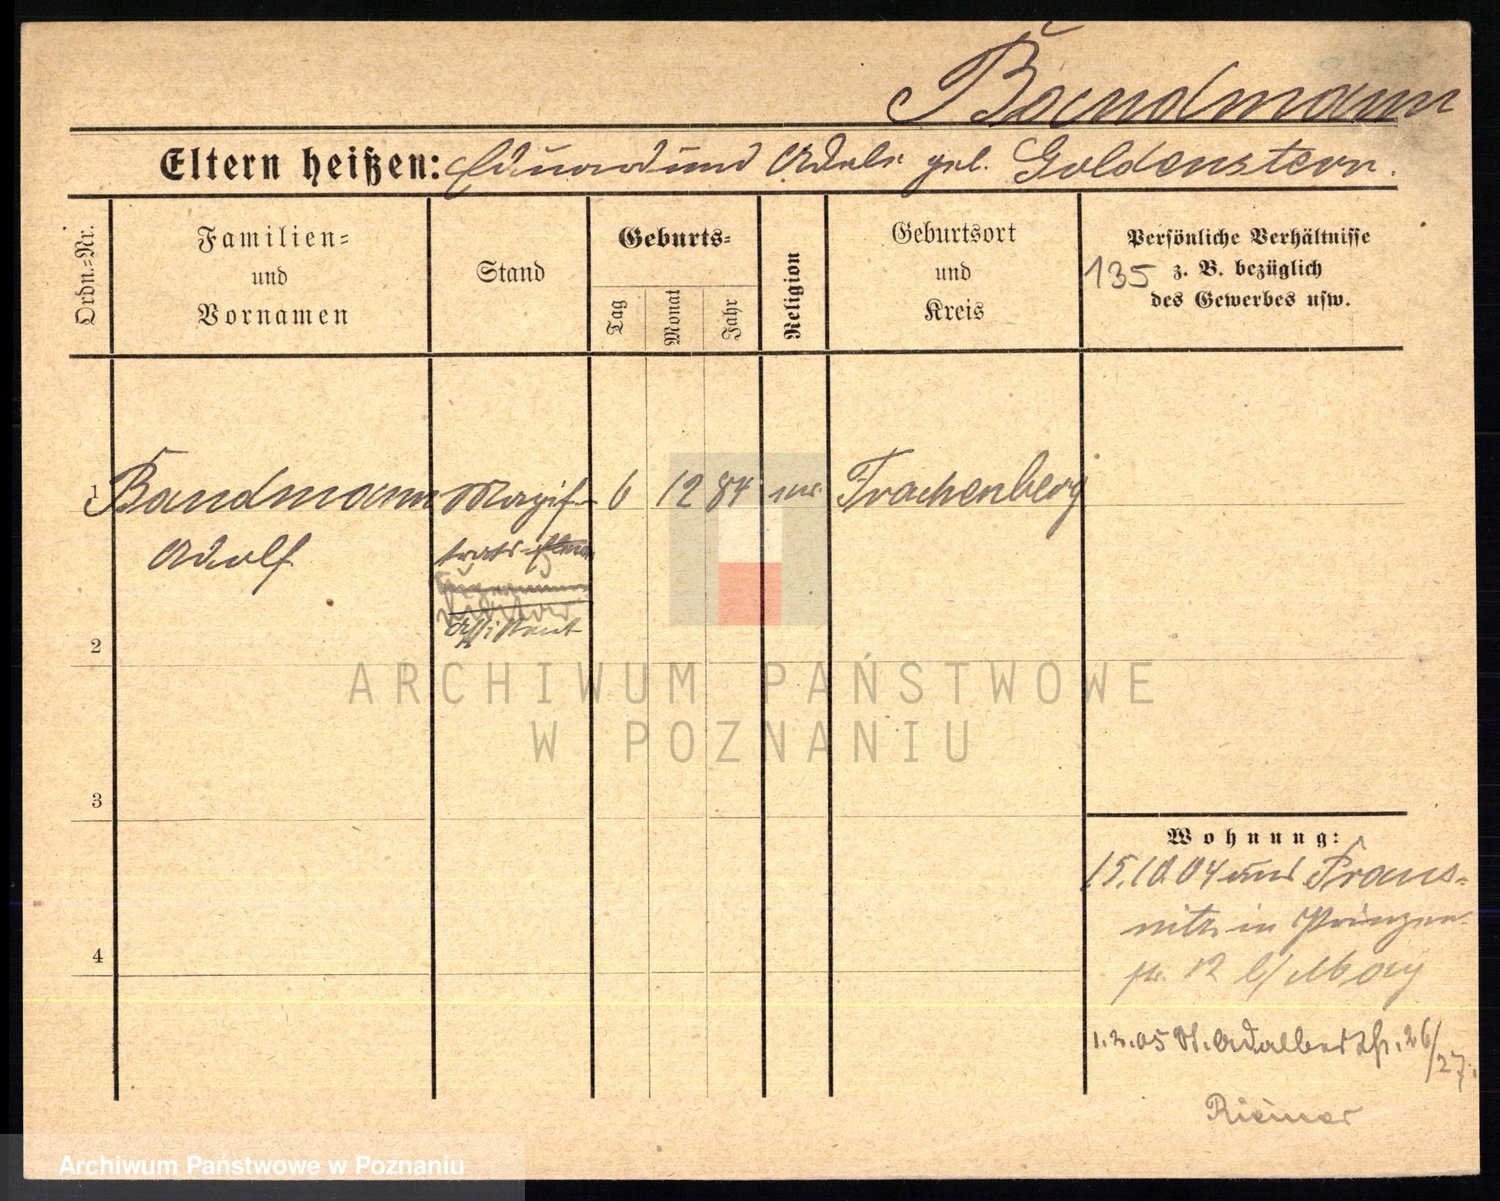 Bandmann
Eltern heißen: Eduard und Adele geb. Goldenstern.
Ordn.-Nr.
Familien-
und
Vornamen
Stand
Geburts-
Tag
Monat
Jahr
Religion
Geburtsort
und
Kreis
Persönliche Verhältnisse
135 z. B. bezüglich
des Gewerbes usw.
1 Bandmann Magis- 6 12 84 Trachenberg
Adolf trats
Assistent
2
3
4
Wohnung:
15.10.04 aus Praus-
nitz in Prinzen-
str. 12 b/ May
1.2.05 St. Adalbertstr. 26/27.
Riemer
ARCHIWUM PAŃSTWOWE
W POZNANIU
Archiwum Państwowe w Poznaniu